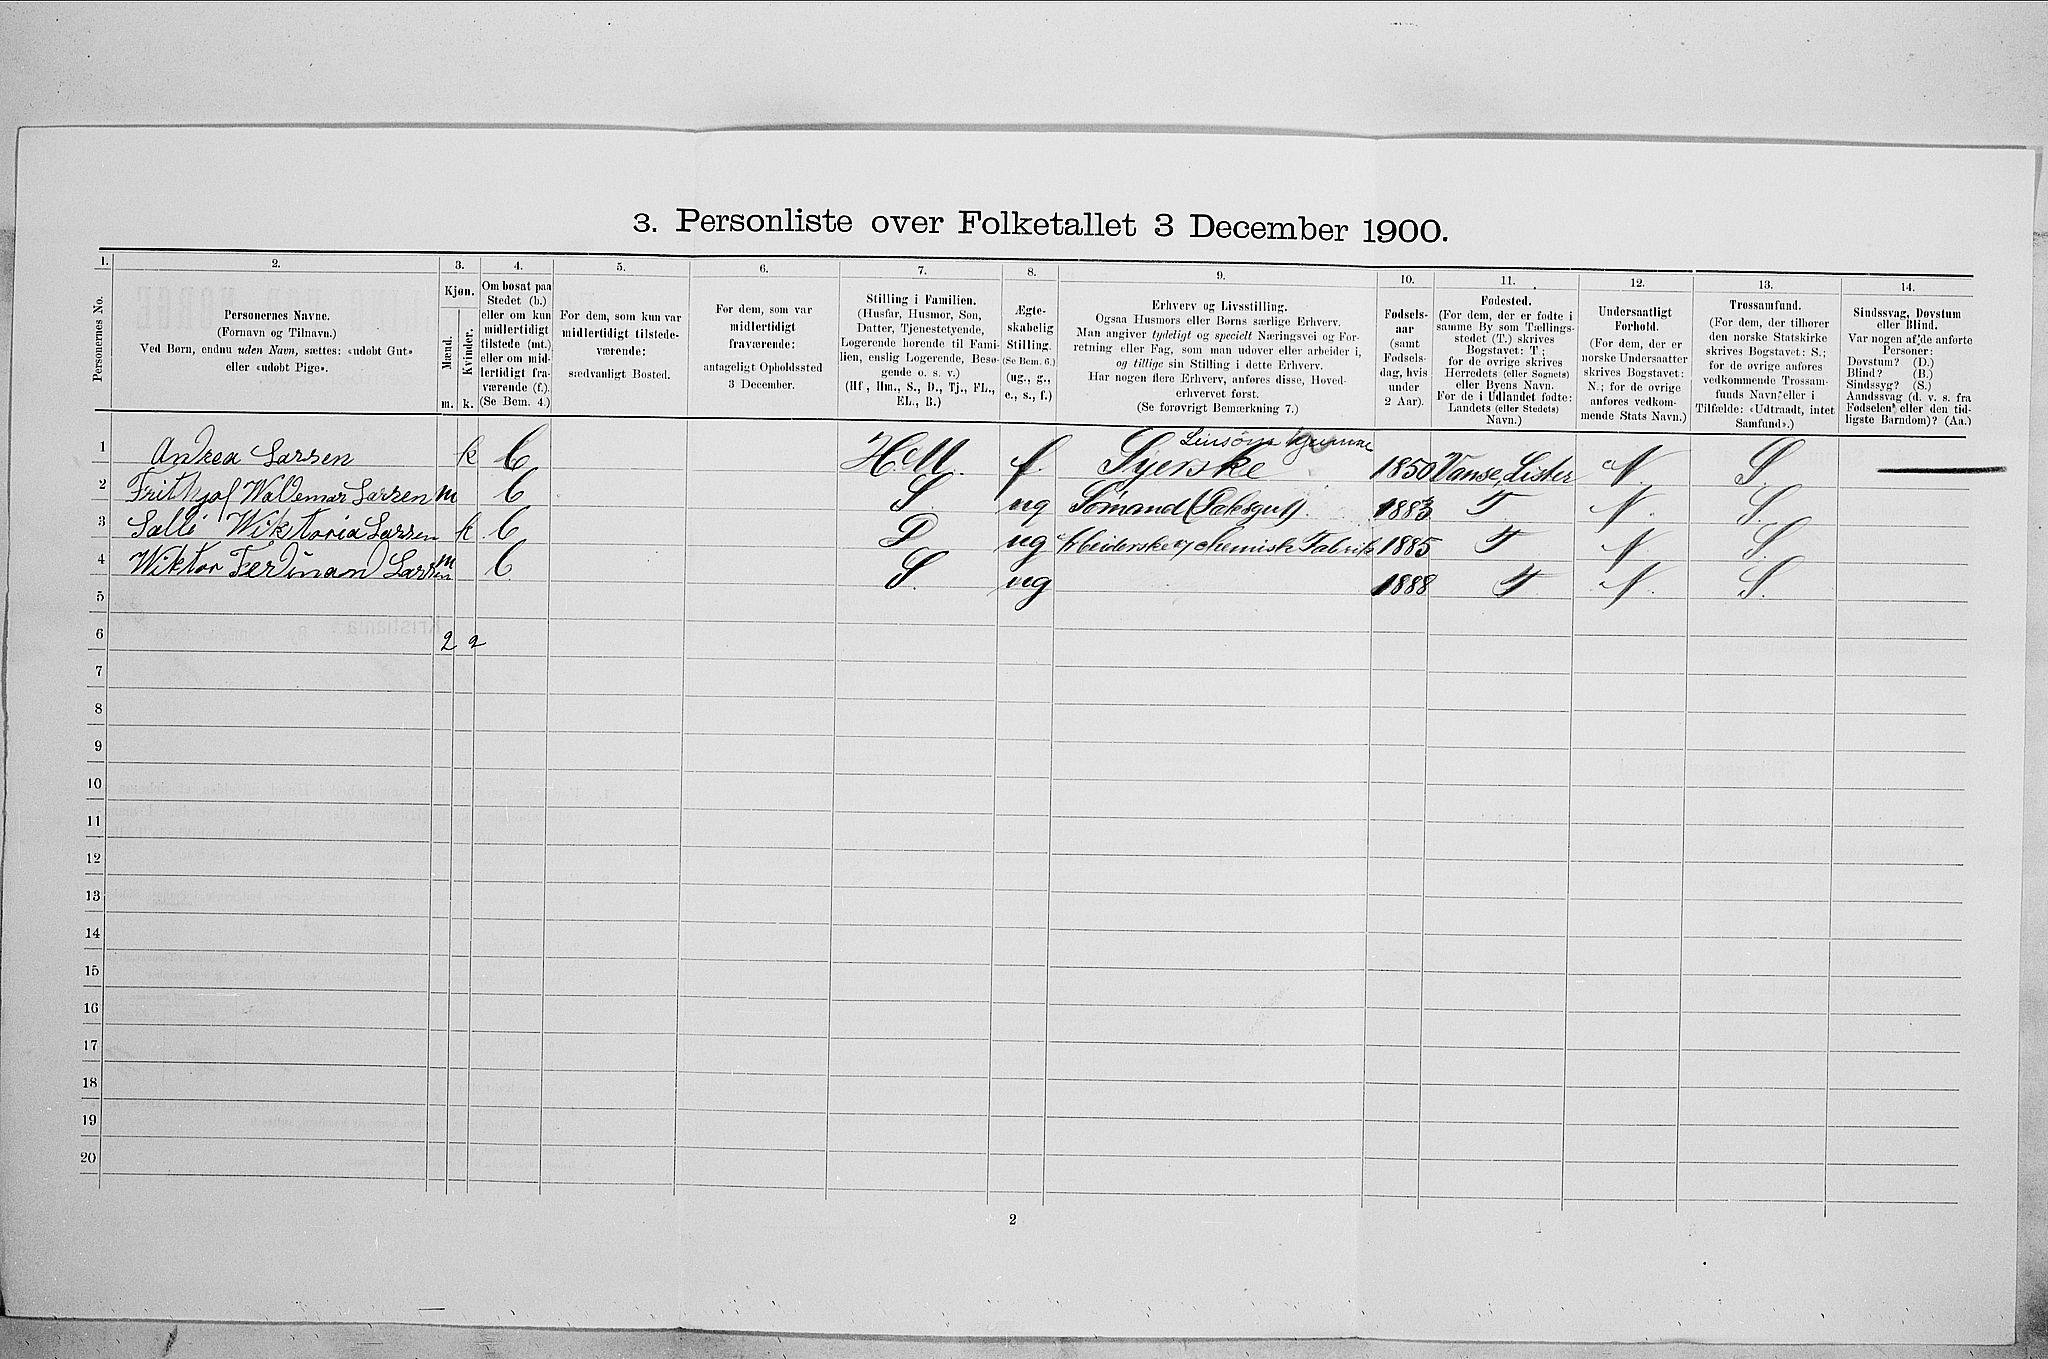 3. Personliste over Folketallet 3 December 1900.
1. 2. 3. 4. 5. 6. 7. 8. 9. 10. 11. 12. 13. 14.
Personernes No.
Personernes Navne.
(Fornavn og Tilnavn.)
Ved Børn, endnu uden Navn, sættes: «udøbt Gut»
eller «udøbt Pige».
Kjøn.
Mænd.
Kvinder.
m. k.
Om bosat paa
Stedet (b.)
eller om kun
midlertidigt
tilstede (mt.)
eller om mid-
lertidigt fra-
værende (f.).
(Se Bem. 4.)
For dem, som kun var
midlertidigt tilstede-
værende:
sædvanligt Bosted.
For dem, som var
midlertidigt
fraværende:
antageligt Opholdssted
3 December.
Stilling i Familien.
(Husfar, Husmor, Søn,
Datter, Tjenestetyende,
Logerende hørende til Fami-
lien, enslig Logerende, Besø-
gende o. s. v.)
(Hf., Hm., S., D., Tj., FL.,
EL., B.)
Ægte-
skabelig
Stilling.
(Se Bem. 6.)
(ug., g.,
e., s., f.)
Erhverv og Livsstilling.
Ogsaa Husmors eller Børns særlige Erhverv.
Man angiver tydeligt og specielt Næringsvei og For-
retning eller Fag, som man udøver eller arbeider i,
og tillige sin Stilling i dette Erhverv.
Har nogen flere Erhverv, anføres disse, Hoved-
erhvervet først.
(Se forøvrigt Bemærkning 7.)
Fødsels-
aar
(samt
Fødsels-
dag, hvis
under
2 Aar).
Fødested.
(For dem, der er fødte i
samme By som Tællings-
stedet (T.) skrives
Bogstavet: T;
for de øvrige skrives
Herredets (eller Sognets)
eller Byens Navn.
For de i Udlandet fødte:
Landets (eller Stedets)
Navn.)
Undersaatligt
Forhold.
(For dem, der er
norske Undersaatter
skrives Bogstavet:
N.; for de øvrige
anføres vedkom-
mende Stats Navn.)
Trossamfund.
(For dem, der tilhører
den norske Statskirke
skrives Bogstavet: S.;
for de øvrige anføres
vedkommende Trossam-
funds Navn, eller i
Tilfælde: «Udtraadt, intet
Samfund».)
Sindssvag, Døvstum
eller Blind.
Var nogen af de anførte
Personer:
Døvstum? (D.)
Blind? (B.)
Sindssyg? (S.)
Aandssvag (d. v. s. fra
Fødselen eller den tid-
ligste Barndom)? (Aa.)
1 Andrea Larsen k b HM. f. Syerske 1850 Vanse, Lister N. S.
2 Frithjof Waldemar Larsen m b S. ug Sømand (Daksgut) 1883 T N. S.
3 Salli Wiktoria Larsen k b D ug Arbeiderske chemisk Fabrik 1885 T N. S.
4 Wiktor Ferdinan Larsen m b S. ug 1888 T N. S.
5
6 2 2
7
8
9
10
11
12
13
14
15
16
17
18
19
20
2